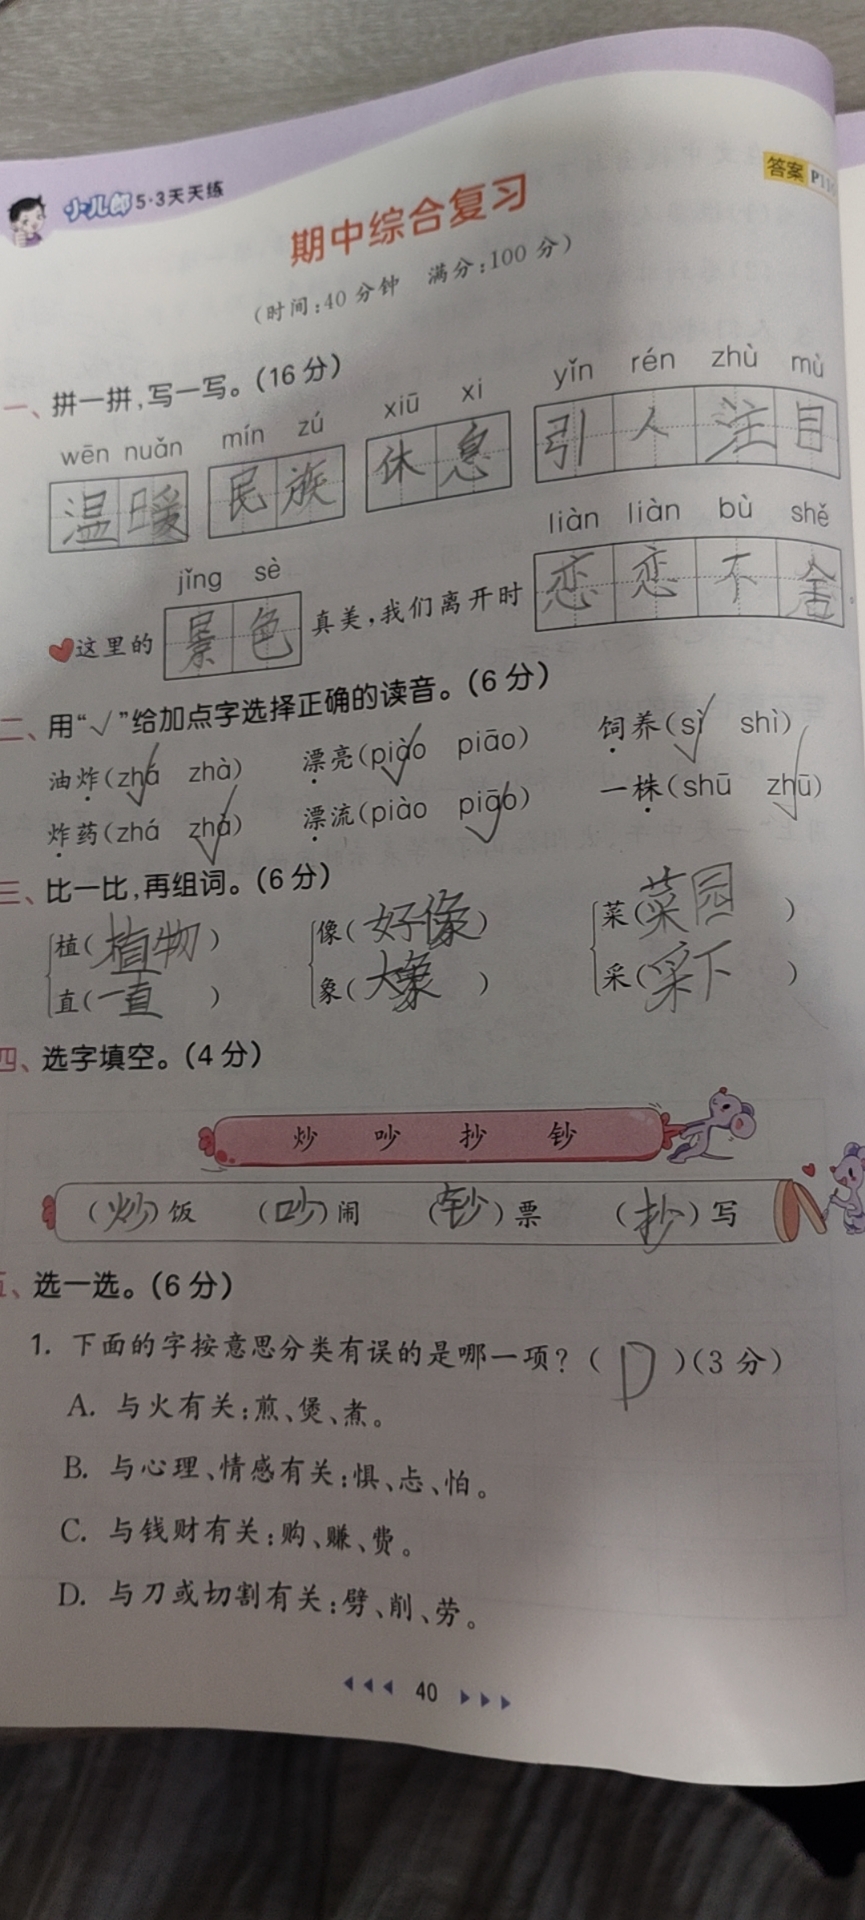 小儿郎5·3天天练
答案 P11
期中综合复习
(时间:40分钟 满分:100分)
一、拼一拼,写一写。(16分)
wēn nuǎn mín zú xiū xi yǐn rén zhù mù
温暖 民族 休息 引人注目
jǐng sè liàn liàn bù shě
这里的景色真美,我们离开时恋恋不舍。
二、用“√”给加点字选择正确的读音。(6分)
油炸(zhá√ zhà) 漂亮(piào√ piāo) 饲养(sì√ shì)
炸药(zhá zhà√) 漂流(piào piāo√) 一株(shū zhū√)
三、比一比,再组词。(6分)
植(植物) 像(好像) 菜(菜园)
直(一直) 象(大象) 采(采下)
四、选字填空。(4分)
炒 吵 抄 钞
(炒)饭 (吵)闹 (钞)票 (抄)写
五、选一选。(6分)
1. 下面的字按意思分类有误的是哪一项?(D)(3分)
A. 与火有关:煎、煲、煮。
B. 与心理、情感有关:惧、忐、怕。
C. 与钱财有关:购、赚、费。
D. 与刀或切割有关:劈、削、劳。
40